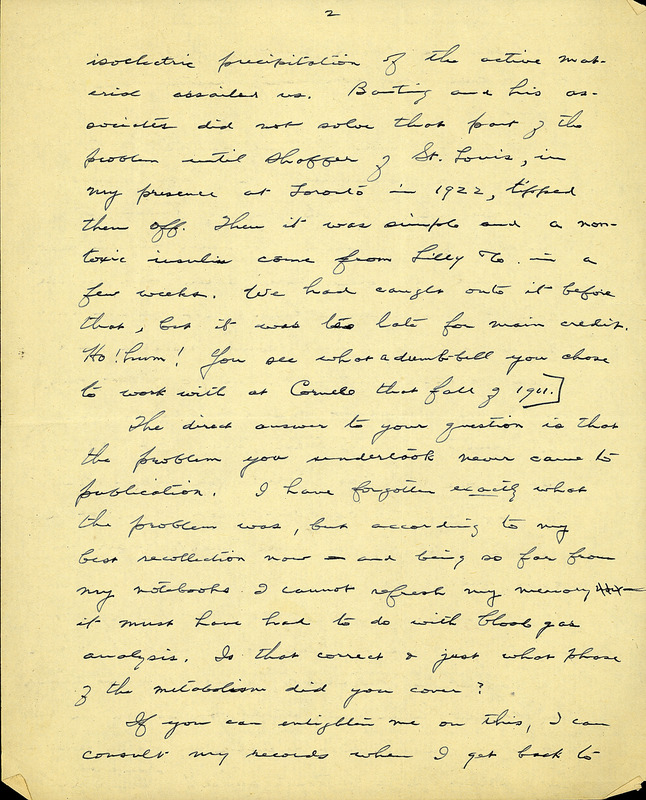 2
isoelectric precipitation of the active mat-
erial assailed us. Banting and his as-
sociates did not solve that part of the
problem until Shaffer of St. Louis, in
my presence at Toronto in 1922, tipped
them off. Then it was simple and a non-
toxic insulin came from Lilly Co. in a
few weeks. We had caught onto it before
that, but it was too late for main credit.
Ho! hum! You see what a dumb-bell you chose
to work with at Cornell that fall of 1911.]
The direct answer to your question is that
the problem you undertook never came to
publication. I have forgotten exactly what
the problem was, but according to my
best recollection now – and being so far from
my notebooks I cannot refresh my memory –
it must have had to do with blood gas
analysis. Is that correct & just what phase
of the metabolism did you cover?
If you can enlighten me on this, I can
consult my records when I get back to